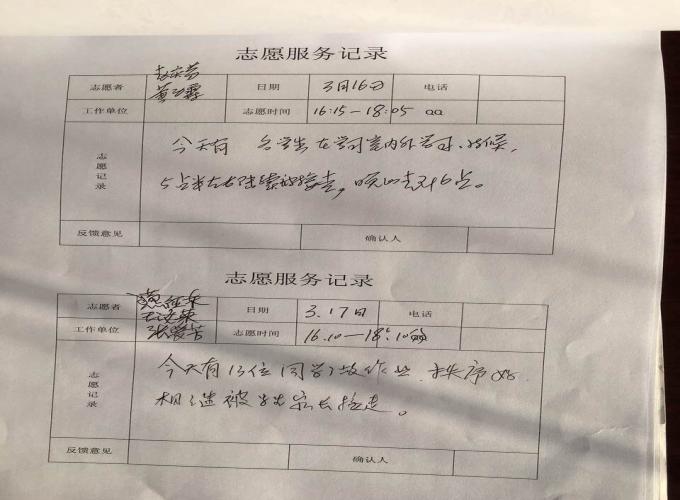 志愿服务记录
志愿者 日期 3月16日 电话
工作单位 志愿时间 16:15-18:05
志愿记录
今天有 名学生在学习室内外学习、等候,
5点半左右陆续被接走,
反馈意见 确认人
志愿服务记录
志愿者 日期 3.17日 电话
工作单位 张爱芳 志愿时间 16.10-18:10
志愿记录
今天有13位同学做作业 秩序好
相继被学生家长接走。
反馈意见 确认人